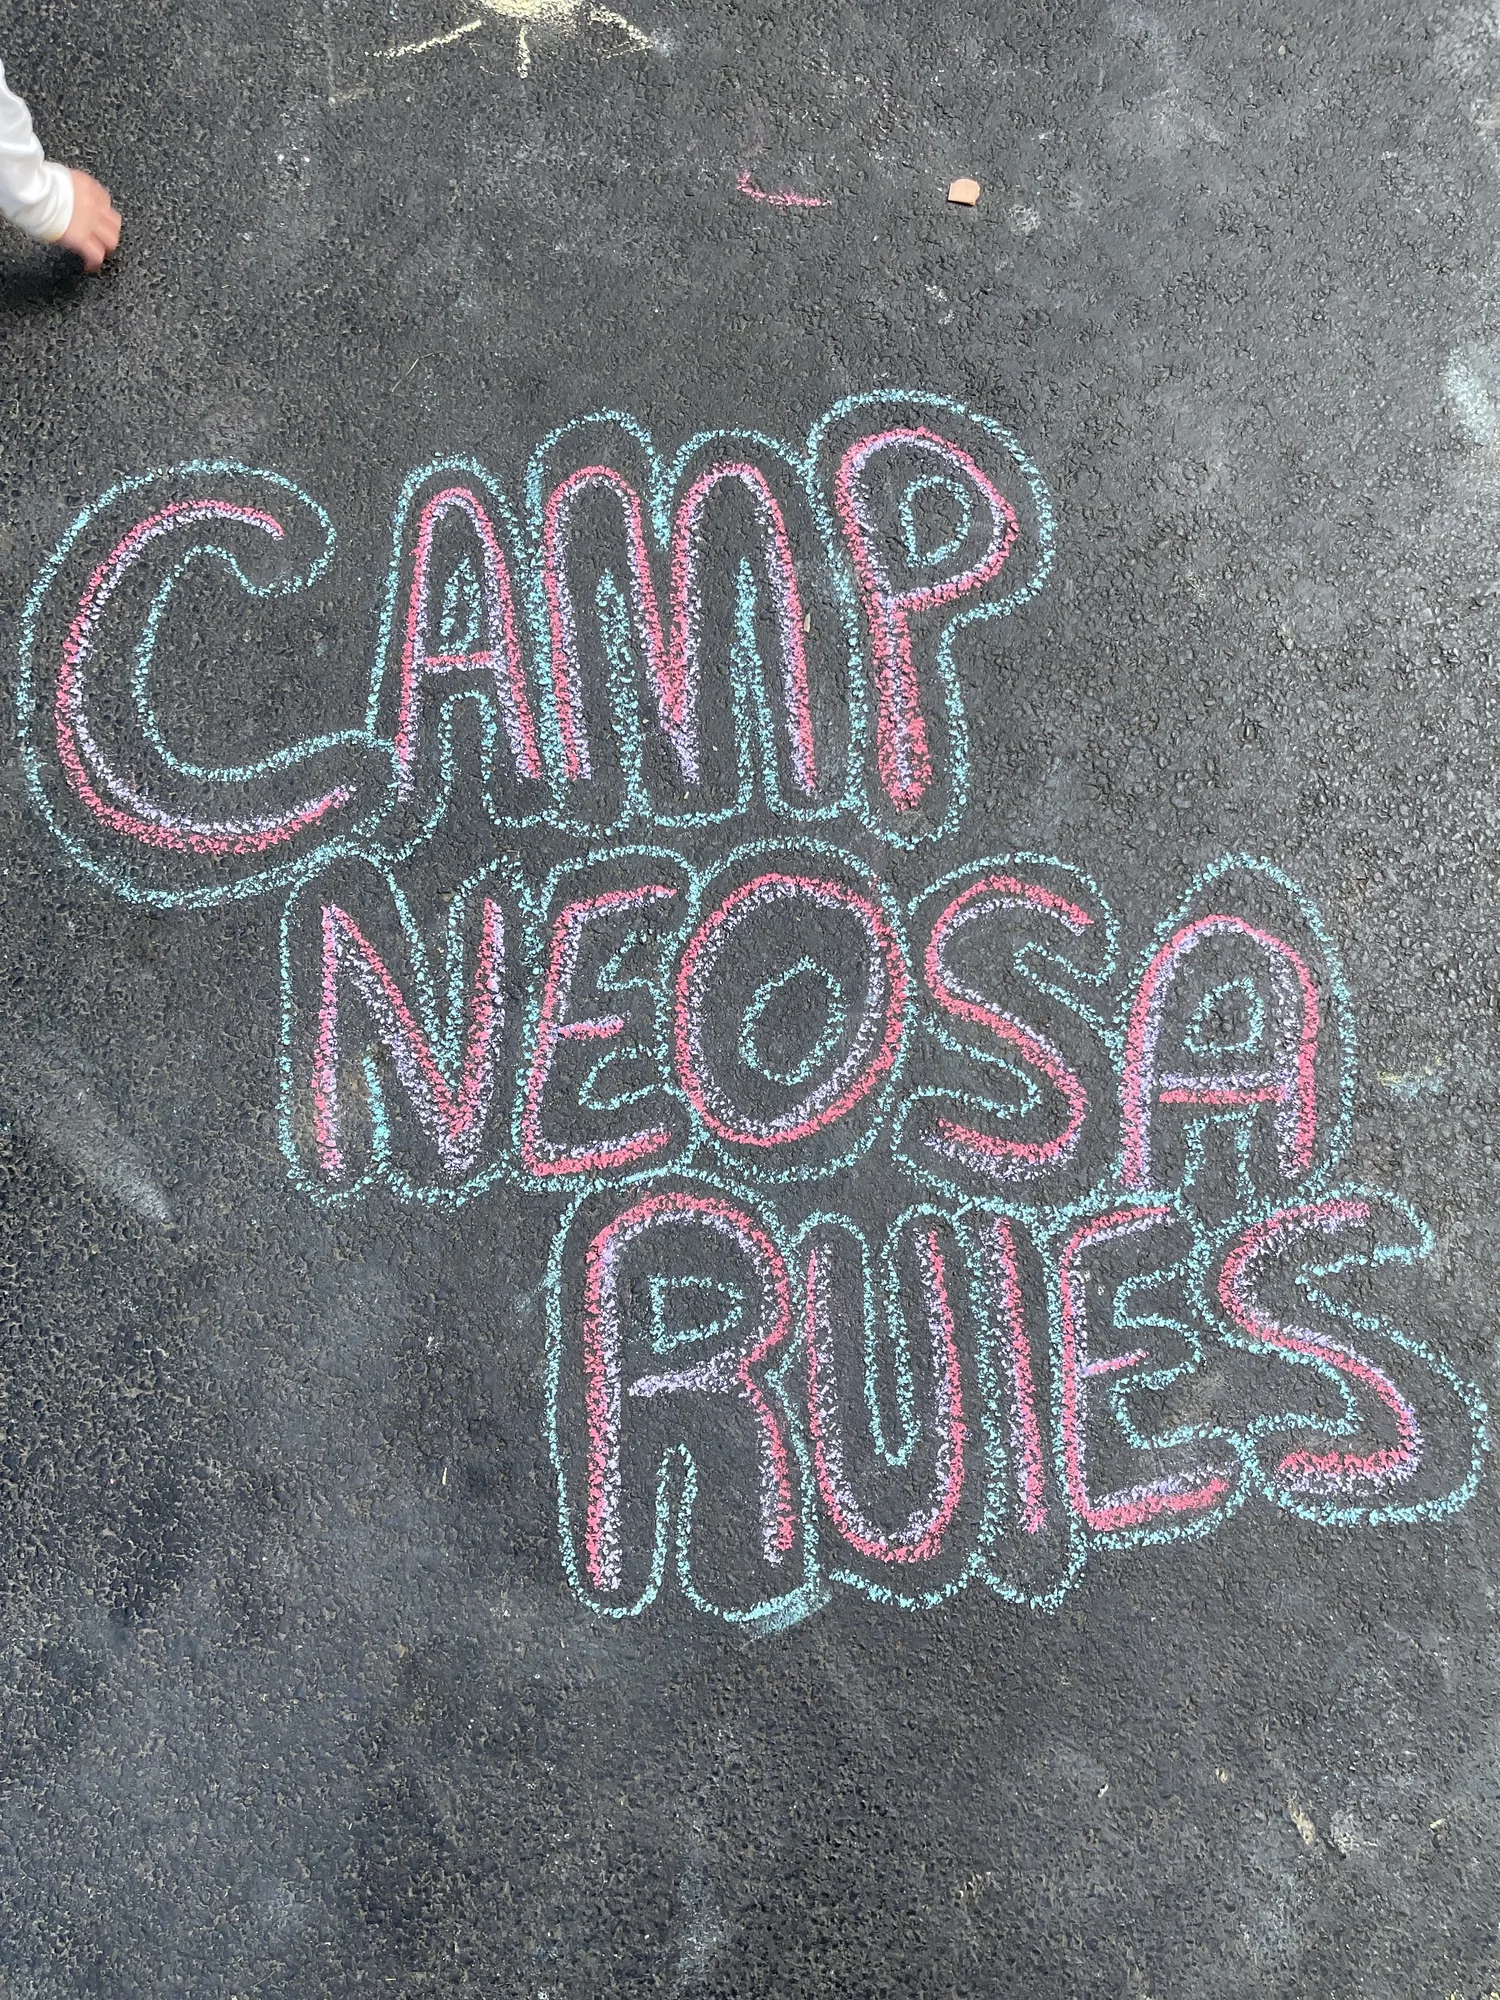 CAMP
NEOSA
RULES